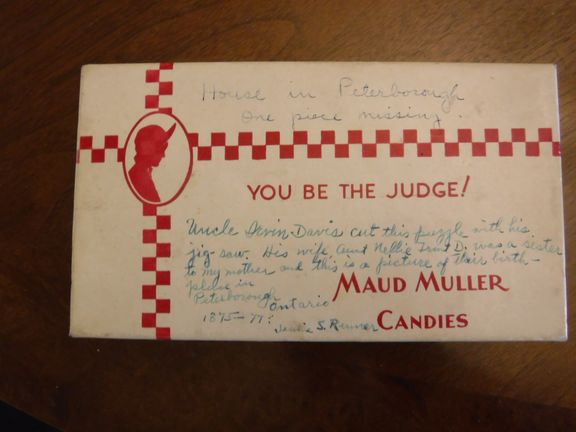 House in Peterborough
One piece missing.
YOU BE THE JUDGE!
Uncle Irvin Davis cut this puzzle with his
jig-saw. His wife, Aunt Nellie D. was a sister
to my mother and this is a picture of their birth-
place in
Peterborough Ontario
1875-77?
S.
MAUD MULLER
CANDIES